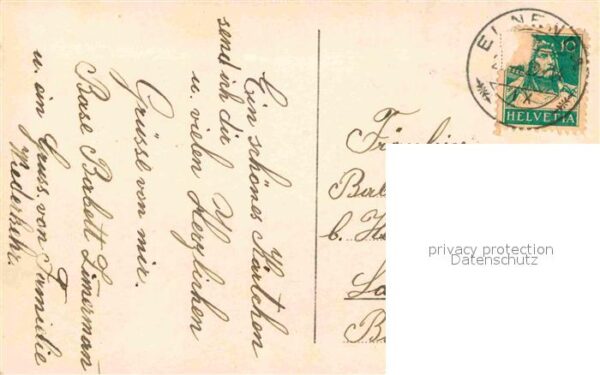 Ein schönes Kärtchen
send ich dir
u. vielen Herzlichen
Grüsse von mir.
Base Babett Zimerman
u. ein Gruss von Familie
Niederhehr.
Fräulein
b.
10
HELVETIA
privacy protection
Datenschutz